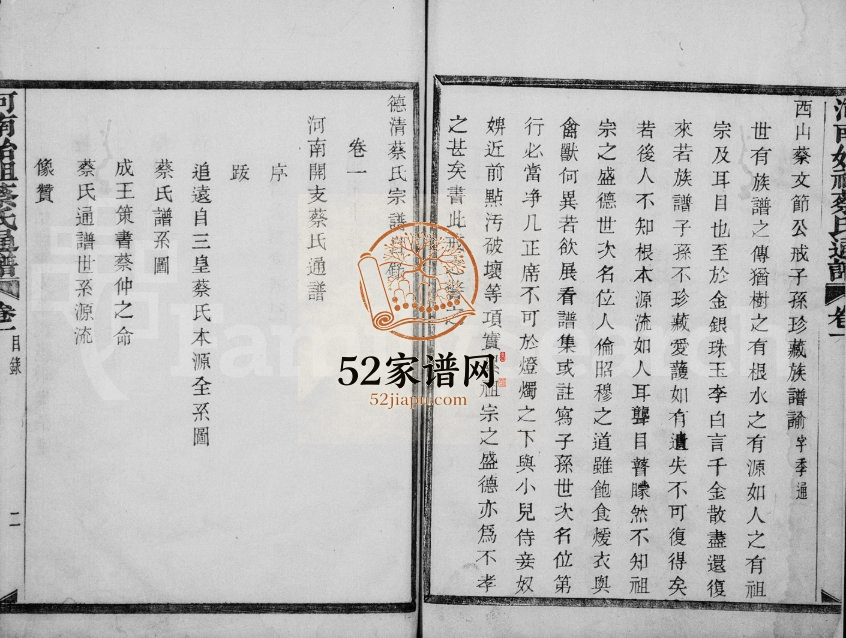 西山蔡文節公戒子孫珍藏族譜諭 字季通
世有族譜之傳猶樹之有根水之有源如人之有祖
宗及耳目也至於金銀珠玉李白言千金散盡還復
來若族譜子孫不珍藏愛護如有遺失不可復得矣
若後人不知根本源流如人耳聾目瞽矇然不知祖
宗之盛德世次名位人倫昭穆之道雖飽食煖衣與
禽獸何異若欲展看譜集或註寫子孫世次名位第
行必當净几正席不可於燈燭之下與小兒侍妾奴
婢近前點汚破壞等項實祖宗之盛德亦爲不孝
之甚矣書此戒
德清蔡氏宗譜目錄
卷一
河南開支蔡氏通譜
序
跋
追遠自三皇蔡氏本源全系圖
蔡氏譜系圖
成王策書蔡仲之命
蔡氏通譜世系源流
像贊
河南始祖蔡氏通譜 卷一 目錄 二
河南始祖蔡氏通譜 卷一
52家谱网
52jiapu.com